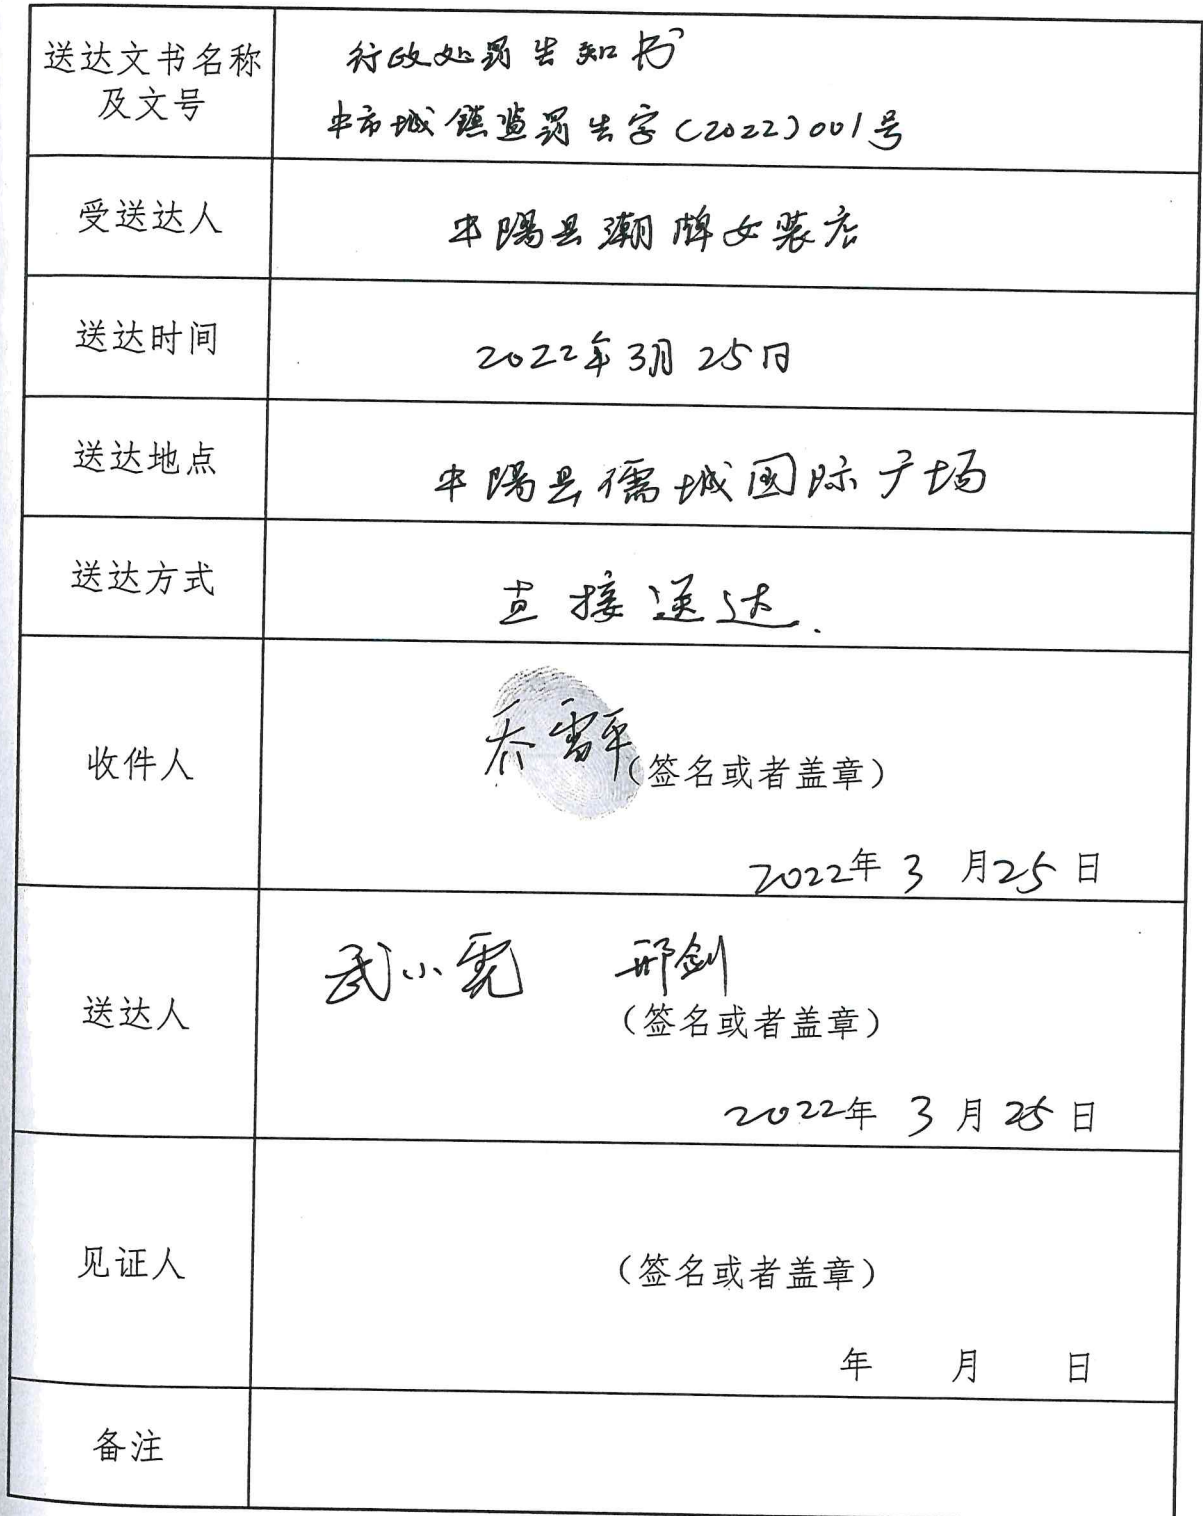 送达文书名称
及文号
行政处罚告知书
中市城镇监罚告字(2022)001号
受送达人
中阳县潮牌女装店
送达时间
2022年3月25日
送达地点
中阳县儒城国际广场
送达方式
直接送达.
收件人
乔雪平(签名或者盖章)
2022年 3 月25日
送达人
武小霓 邢剑
(签名或者盖章)
2022年 3 月25日
见证人
(签名或者盖章)
年 月 日
备注